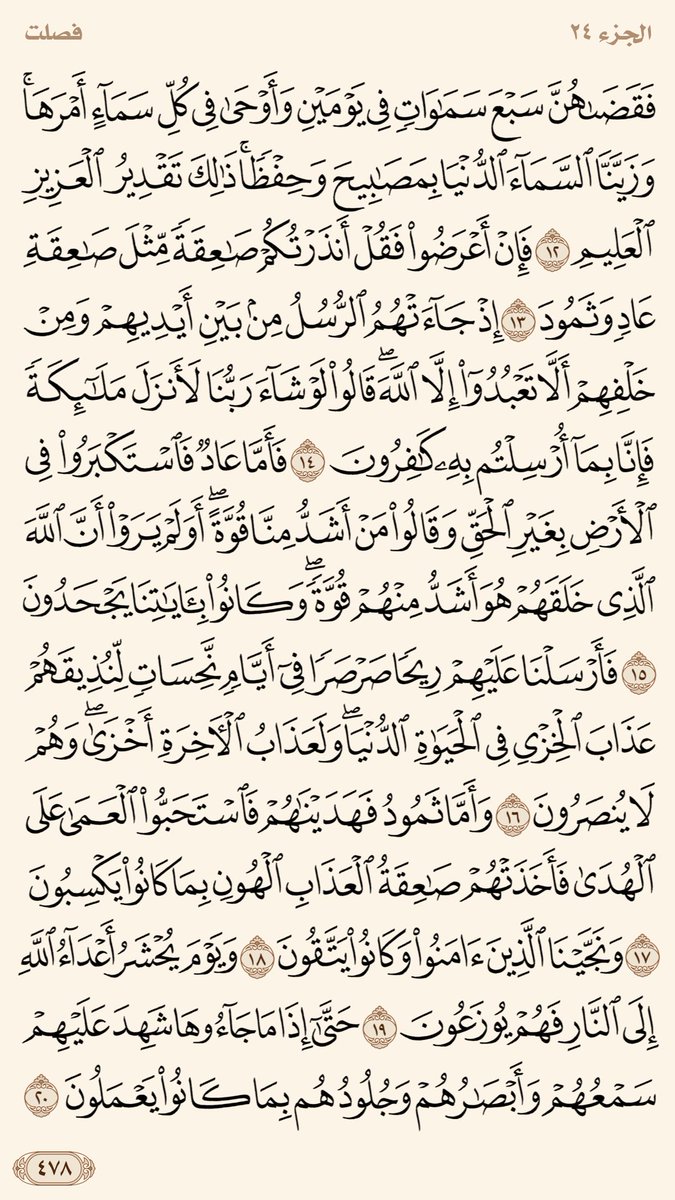 الجزء ٢٤
فصلت
فَقَضَىٰهُنَّ سَبۡعَ سَمَٰوَاتٖ فِي يَوۡمَيۡنِ وَأَوۡحَىٰ فِي كُلِّ سَمَآءٍ أَمۡرَهَاۚ
وَزَيَّنَّا ٱلسَّمَآءَ ٱلدُّنۡيَا بِمَصَٰبِيحَ وَحِفۡظٗاۚ ذَٰلِكَ تَقۡدِيرُ ٱلۡعَزِيزِ
ٱلۡعَلِيمِ ١٢ فَإِنۡ أَعۡرَضُواْ فَقُلۡ أَنذَرۡتُكُمۡ صَٰعِقَةٗ مِّثۡلَ صَٰعِقَةِ
عَادٖ وَثَمُودَ ١٣ إِذۡ جَآءَتۡهُمُ ٱلرُّسُلُ مِنۢ بَيۡنِ أَيۡدِيهِمۡ وَمِنۡ
خَلۡفِهِمۡ أَلَّا تَعۡبُدُوٓاْ إِلَّا ٱللَّهَۖ قَالُواْ لَوۡ شَآءَ رَبُّنَا لَأَنزَلَ مَلَٰٓئِكَةٗ
فَإِنَّا بِمَآ أُرۡسِلۡتُم بِهِۦ كَٰفِرُونَ ١٤ فَأَمَّا عَادٞ فَٱسۡتَكۡبَرُواْ فِي
ٱلۡأَرۡضِ بِغَيۡرِ ٱلۡحَقِّ وَقَالُواْ مَنۡ أَشَدُّ مِنَّا قُوَّةًۖ أَوَلَمۡ يَرَوۡاْ أَنَّ ٱللَّهَ
ٱلَّذِي خَلَقَهُمۡ هُوَ أَشَدُّ مِنۡهُمۡ قُوَّةٗۖ وَكَانُواْ بِـَٔايَٰتِنَا يَجۡحَدُونَ
١٥ فَأَرۡسَلۡنَا عَلَيۡهِمۡ رِيحٗا صَرۡصَرٗا فِيٓ أَيَّامٖ نَّحِسَاتٖ لِّنُذِيقَهُمۡ
عَذَابَ ٱلۡخِزۡيِ فِي ٱلۡحَيَوٰةِ ٱلدُّنۡيَاۖ وَلَعَذَابُ ٱلۡأٓخِرَةِ أَخۡزَىٰۖ وَهُمۡ
لَا يُنصَرُونَ ١٦ وَأَمَّا ثَمُودُ فَهَدَيۡنَٰهُمۡ فَٱسۡتَحَبُّواْ ٱلۡعَمَىٰ عَلَى
ٱلۡهُدَىٰ فَأَخَذَتۡهُمۡ صَٰعِقَةُ ٱلۡعَذَابِ ٱلۡهُونِ بِمَا كَانُواْ يَكۡسِبُونَ
١٧ وَنَجَّيۡنَا ٱلَّذِينَ ءَامَنُواْ وَكَانُواْ يَتَّقُونَ ١٨ وَيَوۡمَ يُحۡشَرُ أَعۡدَآءُ ٱللَّهِ
إِلَى ٱلنَّارِ فَهُمۡ يُوزَعُونَ ١٩ حَتَّىٰٓ إِذَا مَا جَآءُوهَا شَهِدَ عَلَيۡهِمۡ
سَمۡعُهُمۡ وَأَبۡصَٰرُهُمۡ وَجُلُودُهُم بِمَا كَانُواْ يَعۡمَلُونَ ٢٠
٤٧٨